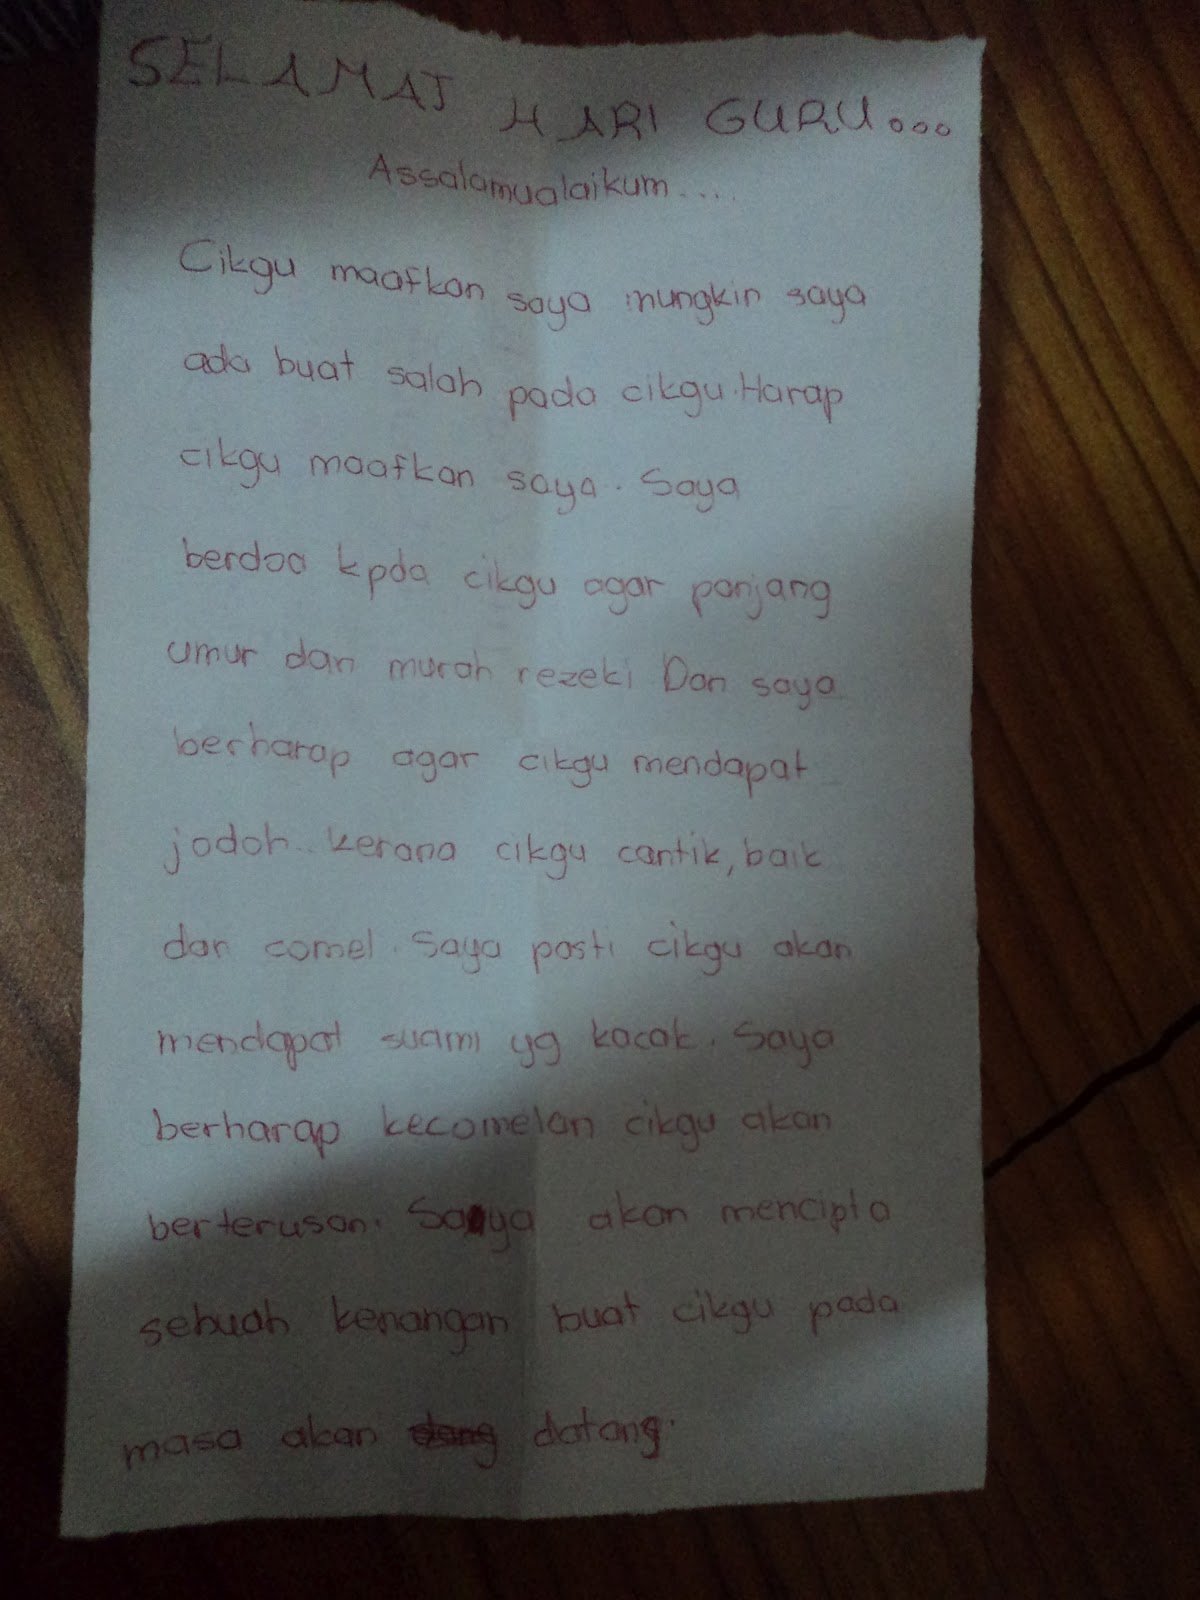 SELAMAT HARI GURU...
Assalamualaikum....
Cikgu maafkan saya mungkin saya
ada buat salah pada cikgu. Harap
cikgu maafkan saya. Saya
berdoa kpda cikgu agar panjang
umur dan murah rezeki Dan saya
berharap agar cikgu mendapat
jodoh.. kerana cikgu cantik, baik
dan comel. Saya pasti cikgu akan
mendapat suami yg kacak. Saya
berharap kecomelan cikgu akan
berterusan. Saya akan mencipta
sebuah kenangan buat cikgu pada
masa akan datang.